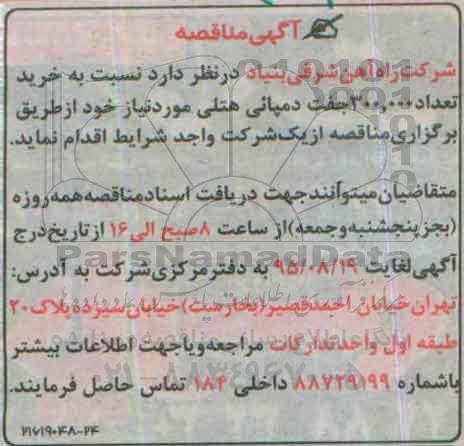 آگهی مناقصه
شرکت راه آهن شرقی بنیاد درنظر دارد نسبت به خرید
تعداد ۳۰۰,۰۰۰ جفت دمپائی هتلی موردنیاز خود ازطریق
برگزاری مناقصه از یک شرکت واجد شرایط اقدام نماید.
متقاضیان میتوانند جهت دریافت اسناد مناقصه همه روزه
(بجز پنجشنبه وجمعه) از ساعت ۸ صبح الی ۱۶ از تاریخ درج
آگهی لغایت ۹۵/۰۸/۱۹ به دفتر مرکزی شرکت به آدرس:
تهران خیابان احمدقصیر (بخارست) خیابان سیزده پلاک ۲۰
طبقه اول واحد تدارکات مراجعه ویا جهت اطلاعات بیشتر
باشماره ۸۸۷۲۹۱۹۹ داخلی ۱۸۴ تماس حاصل فرمایند.
۲۱۶۱۹۰۴۸-۲۴
ParsNamadData